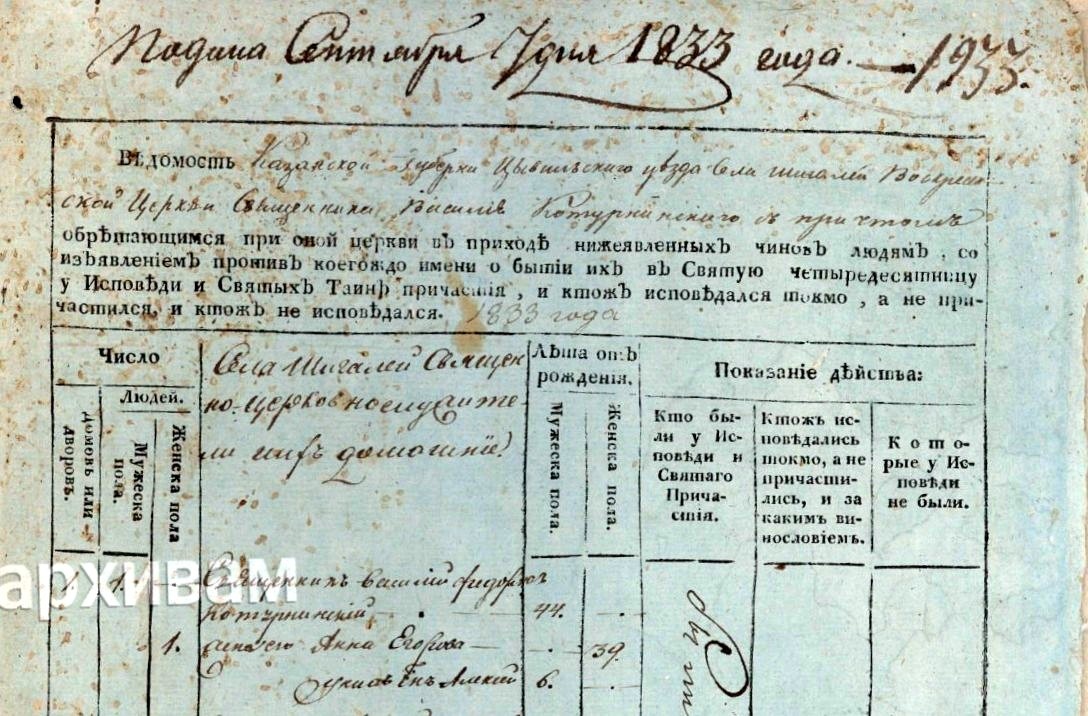 Подана Сентября 7 дня 1833 года. — 1933.
Вѣдомость Казанской Губерни Цывильскаго уѣзда Села Шигалей Воскресен-
ской Церкви Священника Василія Котурнинскаго съ причтомъ
обрѣтающимся при оной церкви въ приходѣ нижеявленныхъ чиновъ людямъ, со
изъявленіемъ противъ коегождо имени о бытіи ихъ въ Святую четыредесятницу
у Исповѣди и Святыхъ Таинъ причастія, и ктожъ исповѣдался токмо, а не при-
частился, и ктожъ не исповѣдался. 1833 года
Число
Людей.
домовъ или дворовъ.
Мужеска пола.
Женска пола
Села Шигалей Священ
но-Церковнослужите
ли ихъ домашніе
Лѣта отъ
рожденія.
Мужеска пола.
Женска пола.
Показаніе дѣйства:
Кто бы-
ли у Ис-
повѣди и
Святаго
Прича-
стія.
Ктожъ ис-
повѣдались
токмо, а не
причасти-
лись, и за
какимъ ви-
нословіемъ.
Кото-
рые у Ис-
повѣди
не были.
1. 1. Священникъ Василій Федоров
Котурнинскій 44.
1. Анна Егорова 39.
Алексѣй 6.
архивам